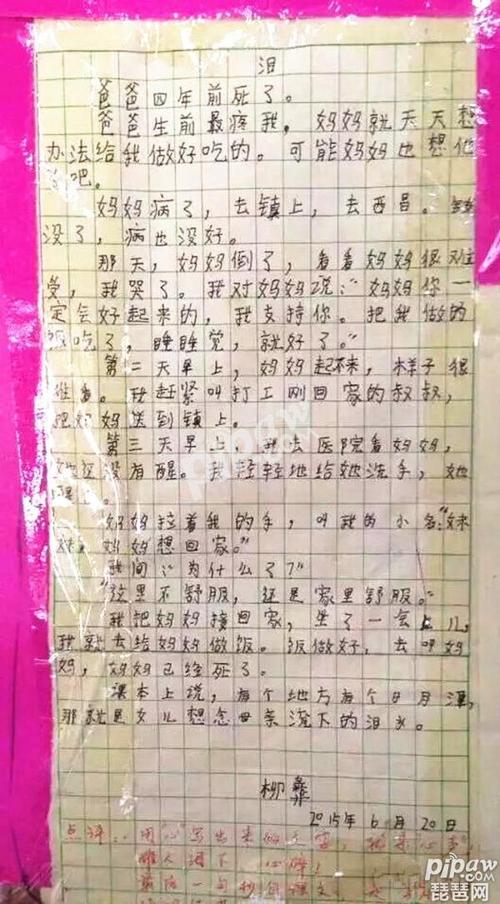 泪
爸爸四年前死了。
爸爸生前最疼我，妈妈就天天想
办法给我做好吃的。可能妈妈也想他
了吧。
妈妈病了，去镇上，去西昌。钱
没了，病也没好。
那天，妈妈倒了，看看妈妈很难
受，我哭了。我对妈妈说：“妈妈你一
定会好起来的，我支持你。把我做的
饭吃了，睡睡觉，就好了。”
第二天早上，妈妈起不来，样子很
难看。我赶紧叫打工刚回家的叔叔，
把妈妈送到镇上。
第三天早上，我去医院看妈妈，
她还没有醒。我轻轻地给她洗手，她
醒了。
妈妈拉着我的手，叫我的小名：“妹
妹，妈妈想回家。”
我问：“为什么了？”
“这里不舒服，还是家里舒服。”
我把妈妈接回家，坐了一会儿，
我就去给妈妈做饭。饭做好，去叫妈
妈，妈妈已经死了。
课本上说，有个地方有个日月潭，
那就是女儿想念母亲流下的泪水。
柳彝
2015年6月20日
点评：用“心”写出来的文字，
催人泪下
pipaw
pipaw
琵琶网